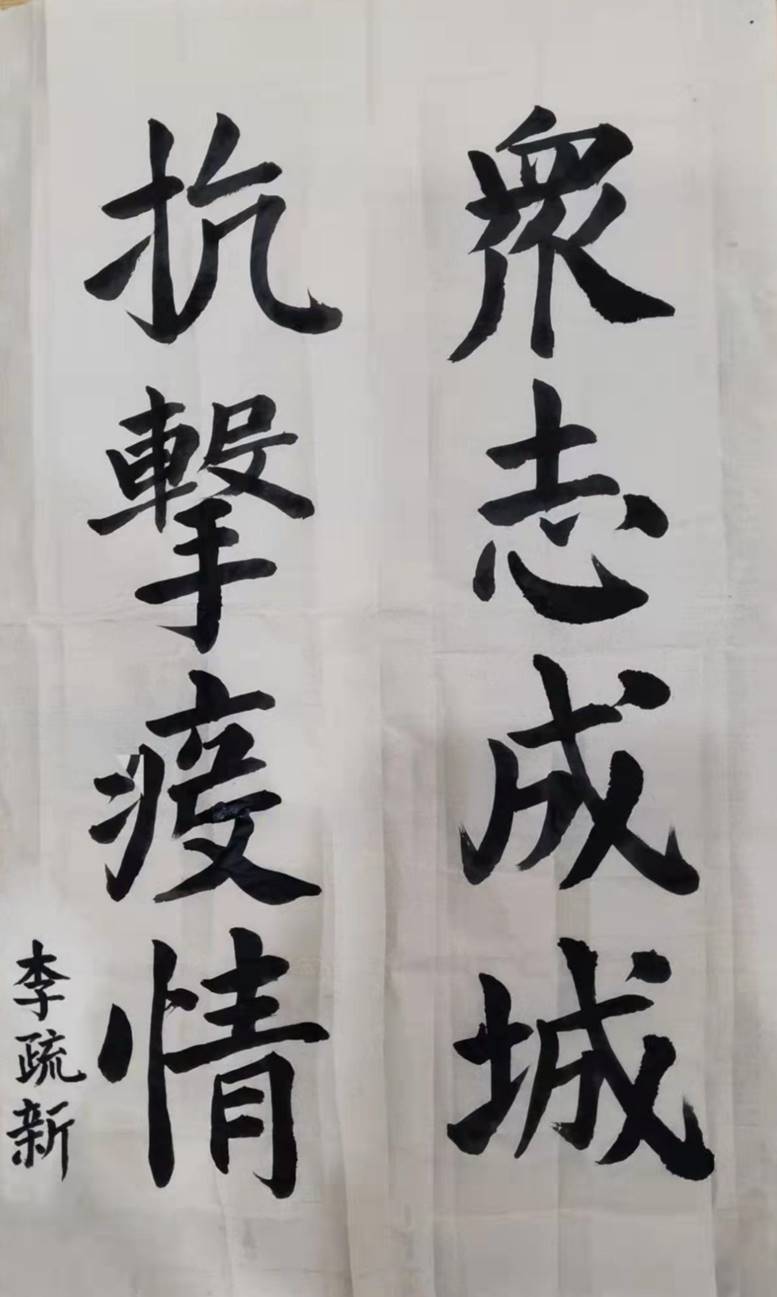 眾志成城
抗擊疫情
李疏新